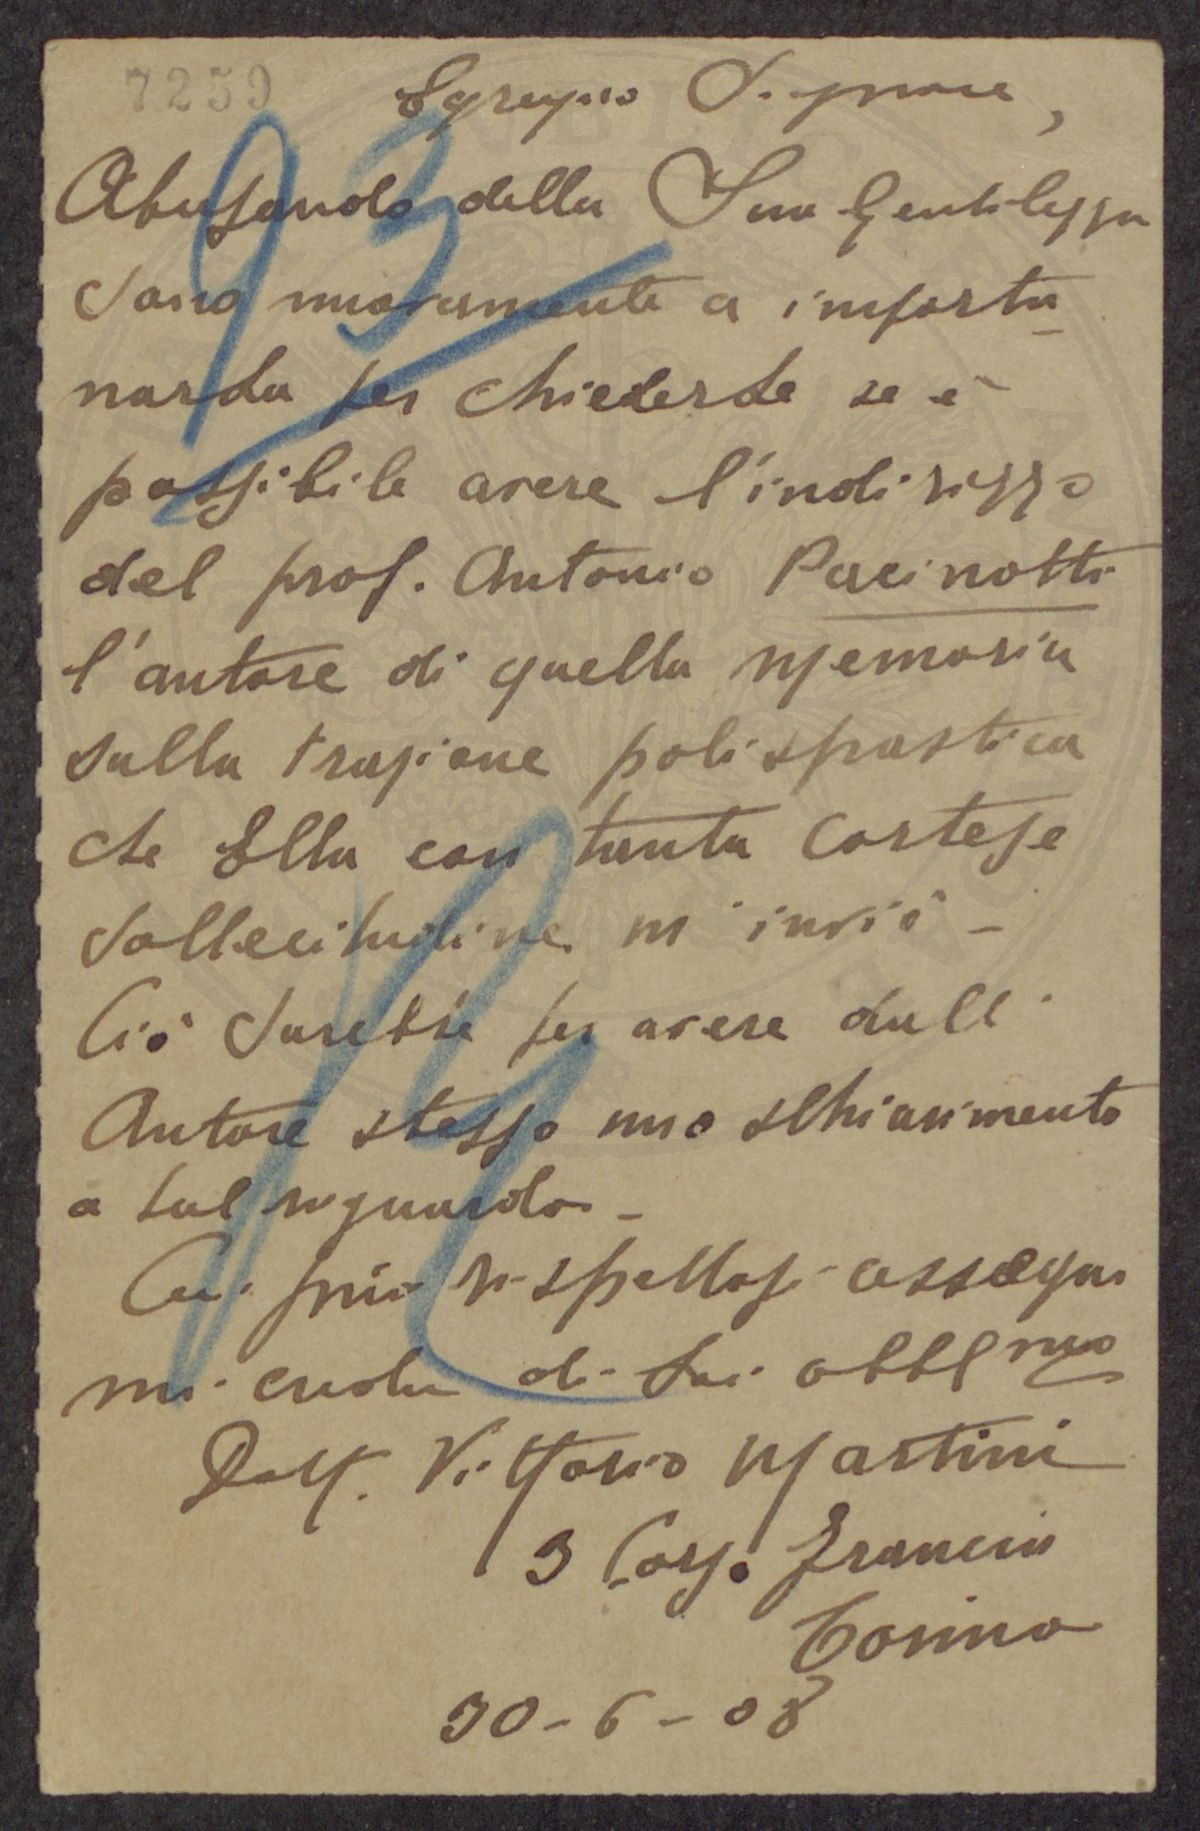 7259
Egregio Signore,
93
Abusando della Sua Gentilezza
sono nuovamente a importu
narLa per chiederLe se è
possibile avere l'indirizzo
del prof. Antonio Pacinotti
l'autore di quella Memoria
sulla trazione polispastica
che Ella con tanta cortese
sollecitudine m'inviò -
Ciò sarebbe per avere dall'
Autore stesso uno schiarimento
a tal riguardo -
Coi più rispettosi ossequi
mi creda di Lei obbl mo
Dott. Vittorio Martini
3 Corso Francia
Torino
30-6-08